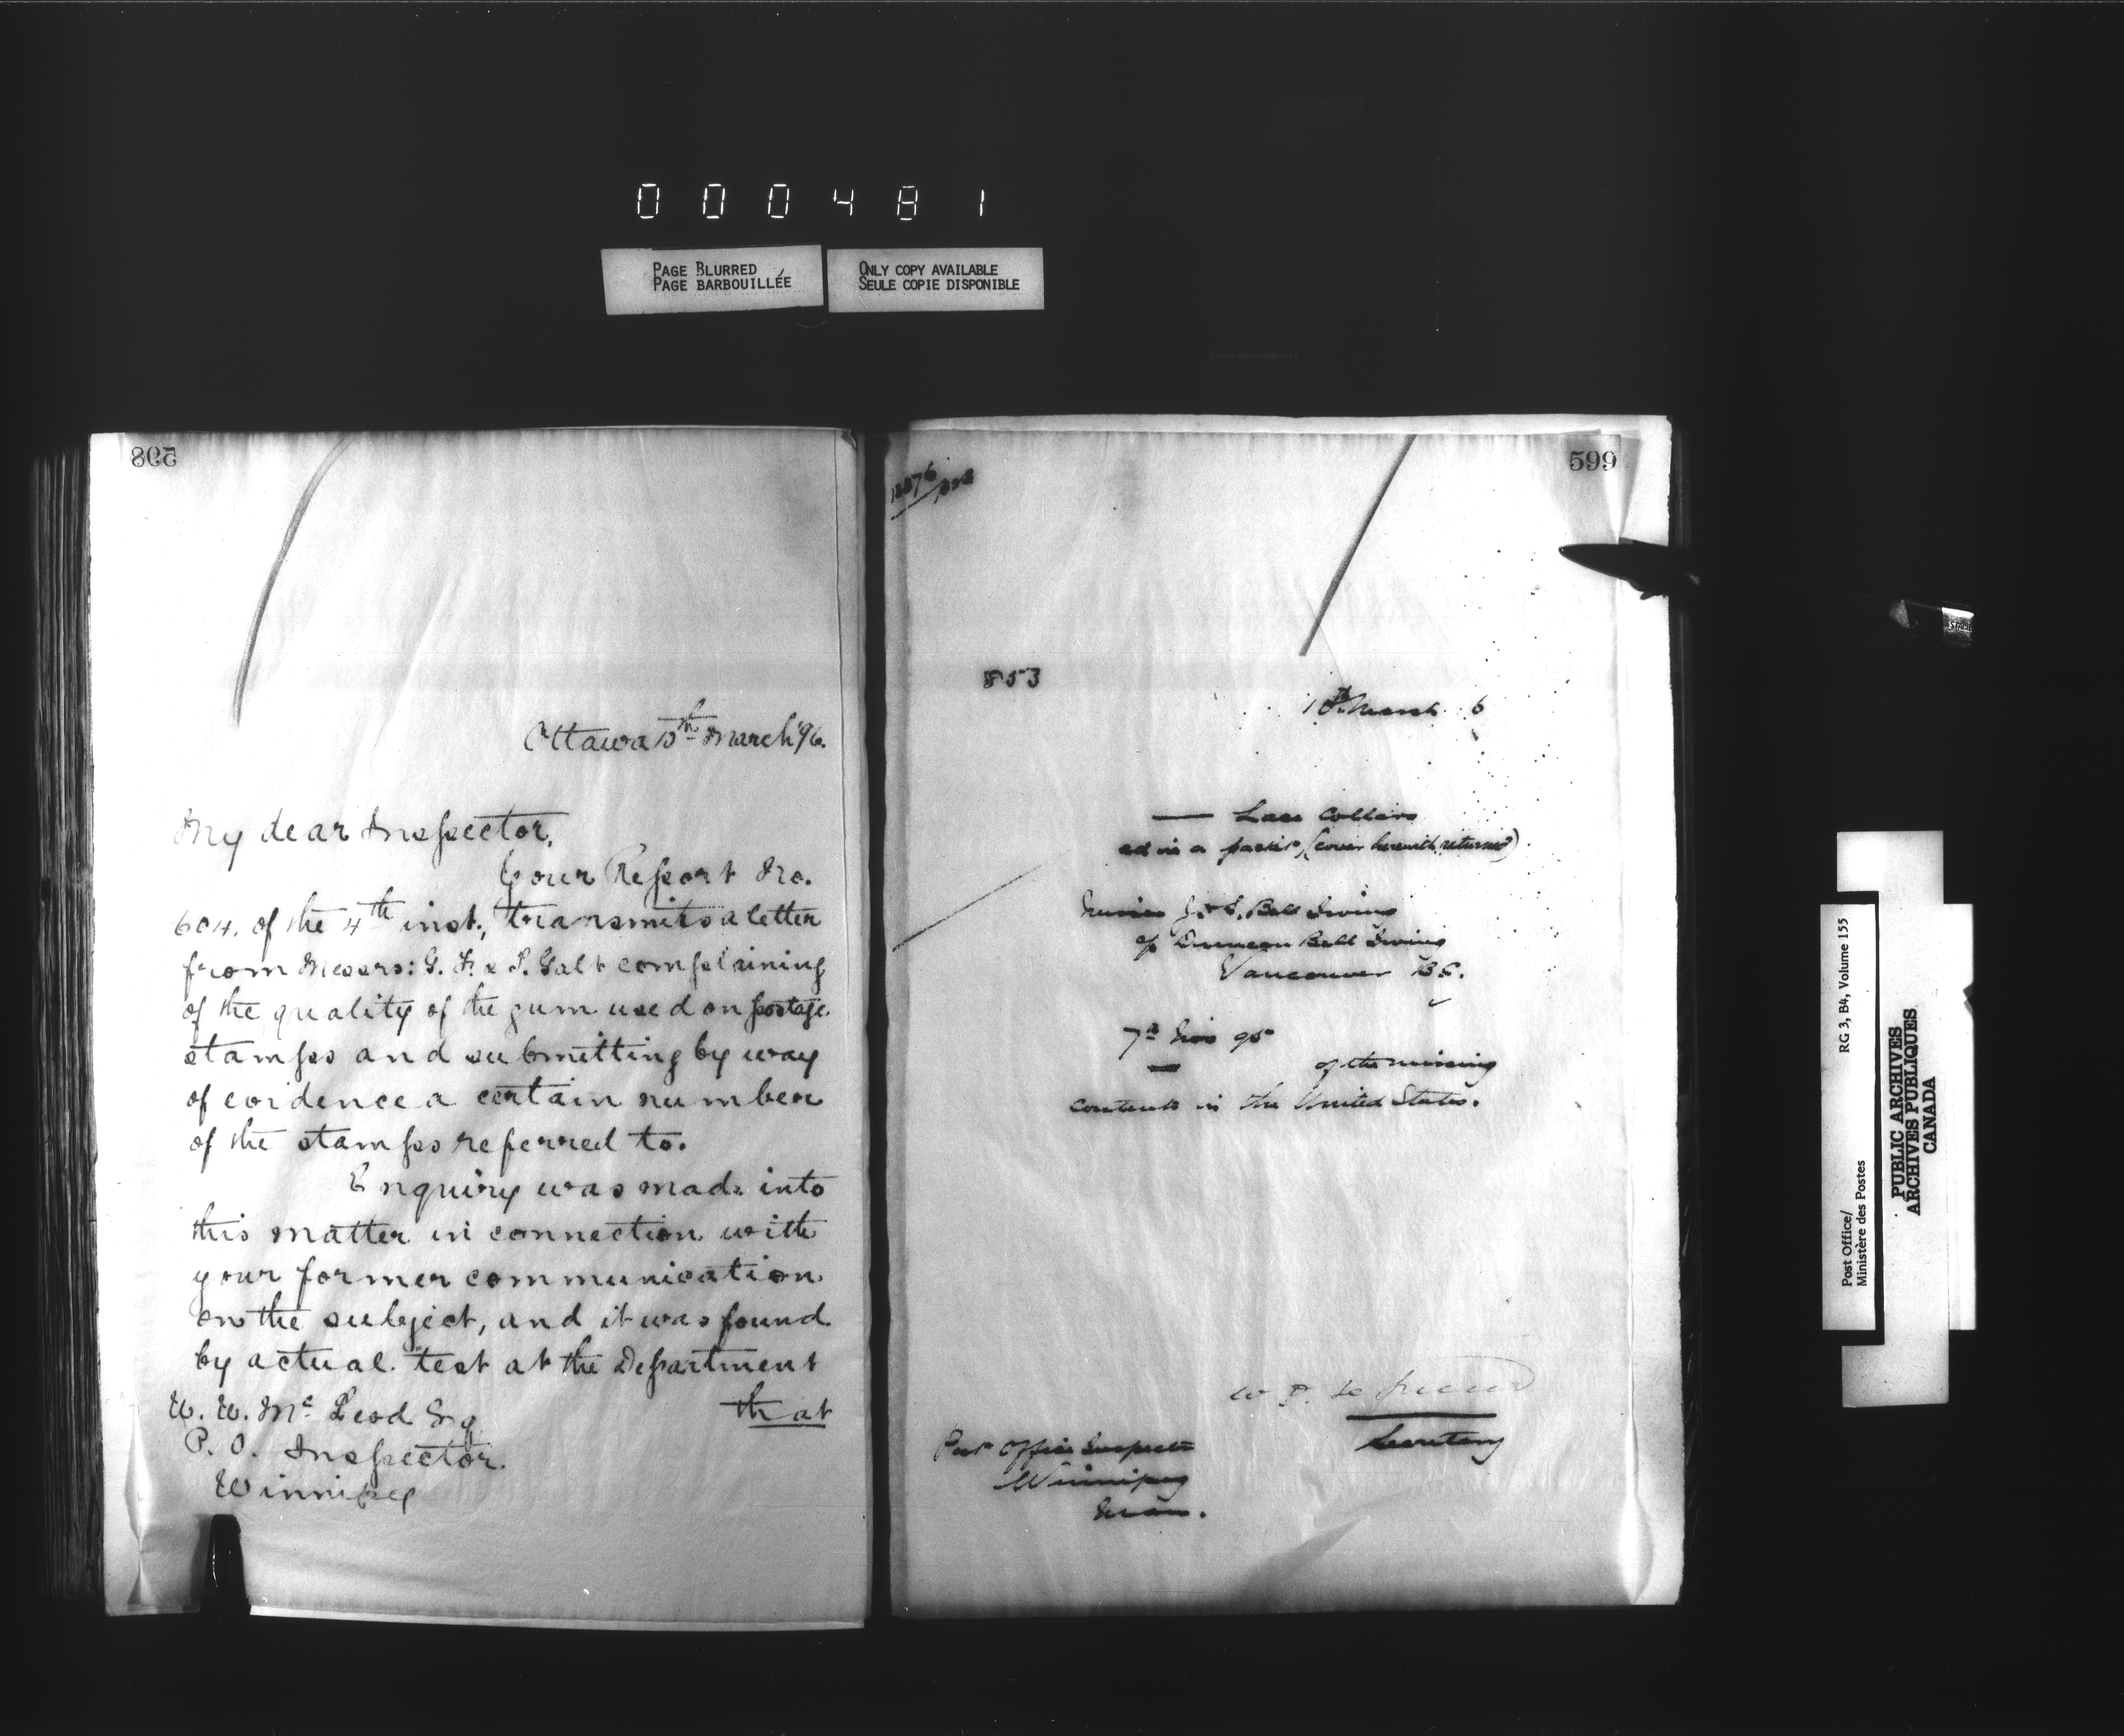 0 0 0 4 8 1
PAGE BLURRED
PAGE BARBOUILLÉE
ONLY COPY AVAILABLE
SEULE COPIE DISPONIBLE
598
Ottawa 10th March '96.
My dear Inspector,
Your Report No.
604, of the 4th inst., transmits a letter
from Messrs: G. F. & J. Galt complaining
of the quality of the gum used on postage
stamps and submitting by way
of evidence a certain number
of the stamps referred to.
Enquiry was made into
this matter in connection with
your former communication
on the subject, and it was found
by actual test at the Department
that
W. W. Mc Leod Esq
P. O. Inspector.
Winnipeg
599
853
March 6
— Lace Collars
ed in a packet, (cover herewith returned)
Misses J. & S. Bell Irving
of Duncan Bell Irving
Vancouver B.C.
7th Nov 95
of the missing
contents in the United States.
Secretary
Post Office Inspector
Winnipeg
Man.
Post Office/
Ministère des Postes
RG 3, B4, Volume 155
PUBLIC ARCHIVES
ARCHIVES PUBLIQUES
CANADA